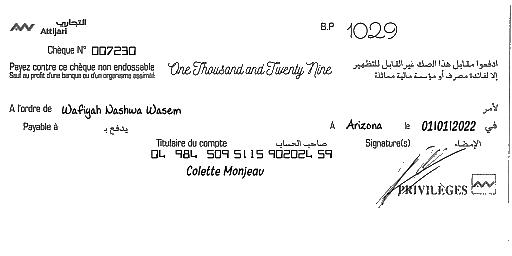 التجاري
Attijari
B.P 1029
Chèque N° 007230
Payez contre ce chèque non endossable
Sauf au profit d'une banque ou d'un organisme assimilé
One Thousand and Twenty Nine
ادفعوا مقابل هذا الصك غير القابل للتظهير
إلا لفائدة مصرف أو مؤسسة مالية مماثلة
A l'ordre de Wafiyah Nashwa Wasem لأمر
Payable à يدفع بـ
A Arizona le 01/01/2022 في
Titulaire du compte صاحب الحساب
Signature(s) الإمضاء
04 984 509 5115 902024 59
Colette Monjeau
PRIVILÈGES